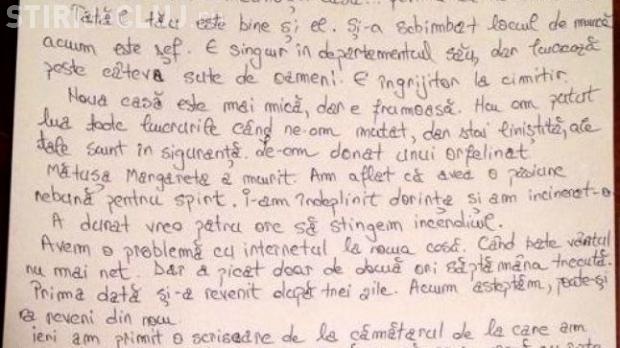 STIRI CLUJ
Tatăl tău este bine și el. Și-a schimbat locul de muncă
acum este șef. E singur în departamentul său, dar lucrează
peste câteva sute de oameni. E îngrijitor la cimitir.
Noua casă este mai mică, dar e frumoasă. Nu am putut
lua toate lucrurile când ne-am mutat, dar stai liniștită, ale
tale sunt în siguranță. Le-am donat unui orfelinat.
Mătușa Margareta a murit. Am aflat că avea o pasiune
nebună pentru spirt. I-am îndeplinit dorința si am incinerat-o
A durat vreo patru ore să stingem incendiul.
Avem o problemă cu internetul la noua casă. Când bate vântul
nu mai net. Dar a picat doar de două ori săptămâna trecută.
Prima dată și-a revenit după trei zile. Acum asteptăm, poate-și
va reveni din nou.
ieri am primit o scrisoare de la cămătarul de la care am